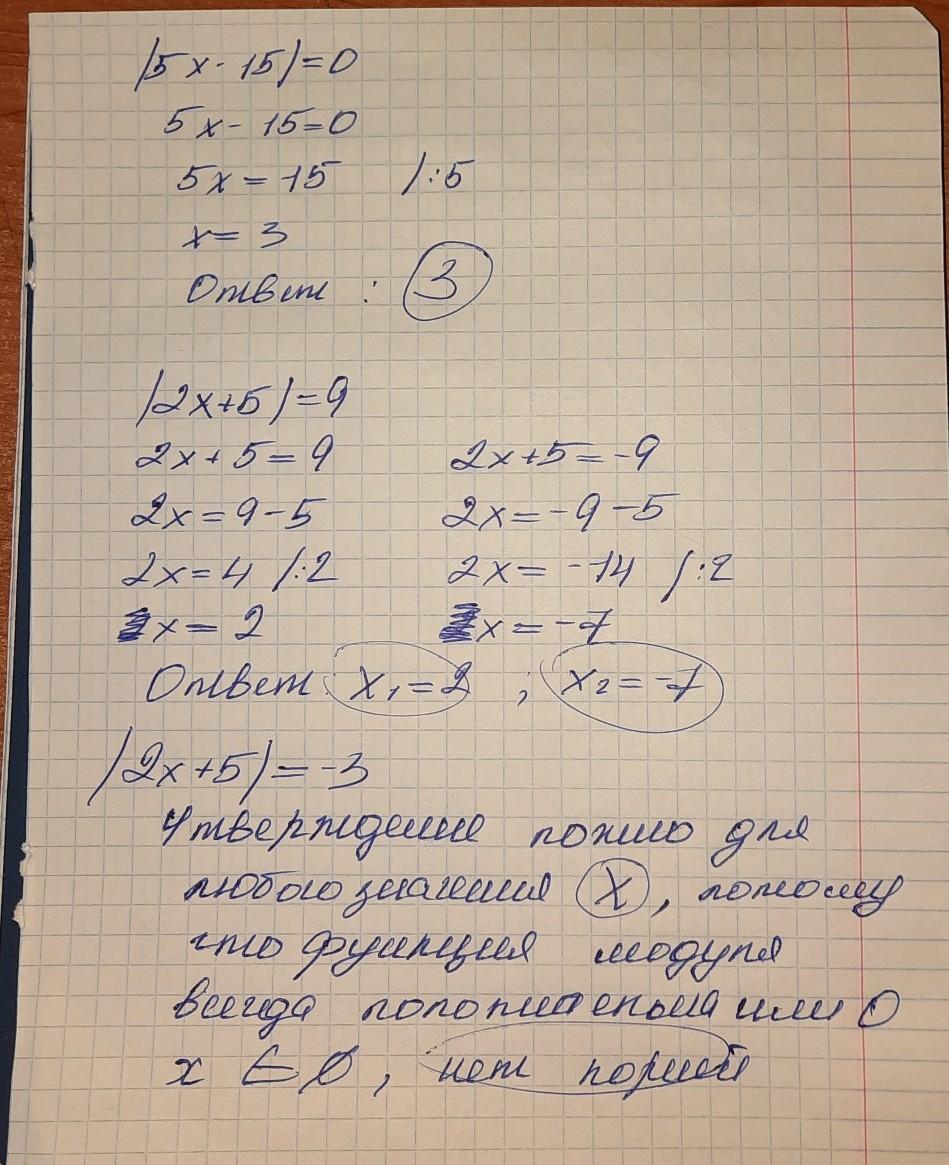 |5x - 15| = 0
5x - 15 = 0
5x = 15 /:5
x = 3
Ответ : 3
|2x+5| = 9
2x + 5 = 9 2x+5 = -9
2x = 9 - 5 2x = -9 - 5
2x = 4 /:2 2x = -14 /:2
x = 2 x = -7
Ответ x₁ = 2 ; x₂ = -7
|2x+5| = -3
Утверждение ложно для
любого значения x, потому
что функция модуля
всегда положительна или 0
x ∈ ∅, нет корней